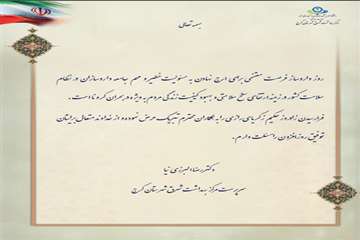 بسمه تعالی
روز داروساز فرصت مغتنمی برای ارج نهادن به مسئولیت خطیر و مهم جامعه داروسازان در نظام
سلامت کشور در زمینه ارتقای سطح سلامتی و بهبود کیفیت زندگی مردم به ویژه در بحران کرونا است.
فرارسیدن زادروز حکیم زکریای رازی را به همکاران محترم تبریک عرض نموده و از خداوند متعال برایتان
توفیق روزافزون را مسئلت دارم.
دکتر رضا البرزی نیا
سرپرست مرکز بهداشت شرق شهرستان کرج